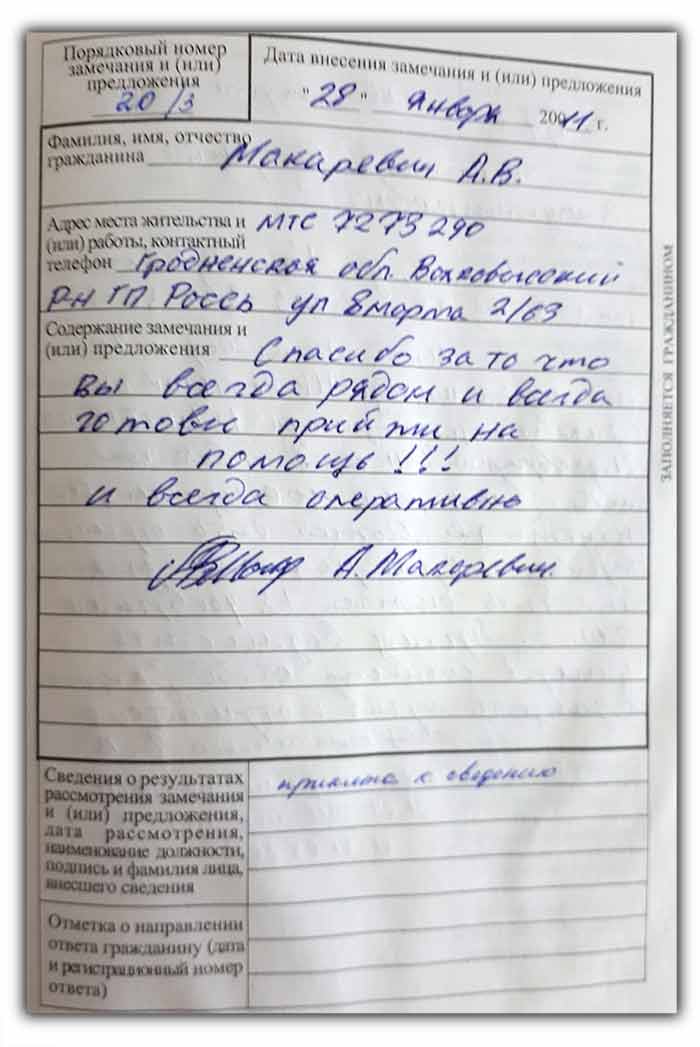 Порядковый номер
замечания и (или)
предложения
20/3
Дата внесения замечания и (или) предложения
"28" января 2011 г.
Фамилия, имя, отчество
гражданина Макаревич А.В.
Адрес места жительства и МТС 7273290
(или) работы, контактный
телефон Гродненская обл. Волковысский
рн ГП Россь ул 8 марта 2/63
Содержание замечания и
(или) предложения Спасибо за то что
вы всегда рядом и всегда
готовы прийти на
помощь!!!
и всегда оперативно
А. Макаревич
ЗАПОЛНЯЕТСЯ ГРАЖДАНИНОМ
Сведения о результатах
рассмотрения замечания
и (или) предложения,
дата рассмотрения,
наименование должности,
подпись и фамилия лица,
внесшего сведения
принято к сведению
Отметка о направлении
ответа гражданину (дата
и регистрационный номер
ответа)